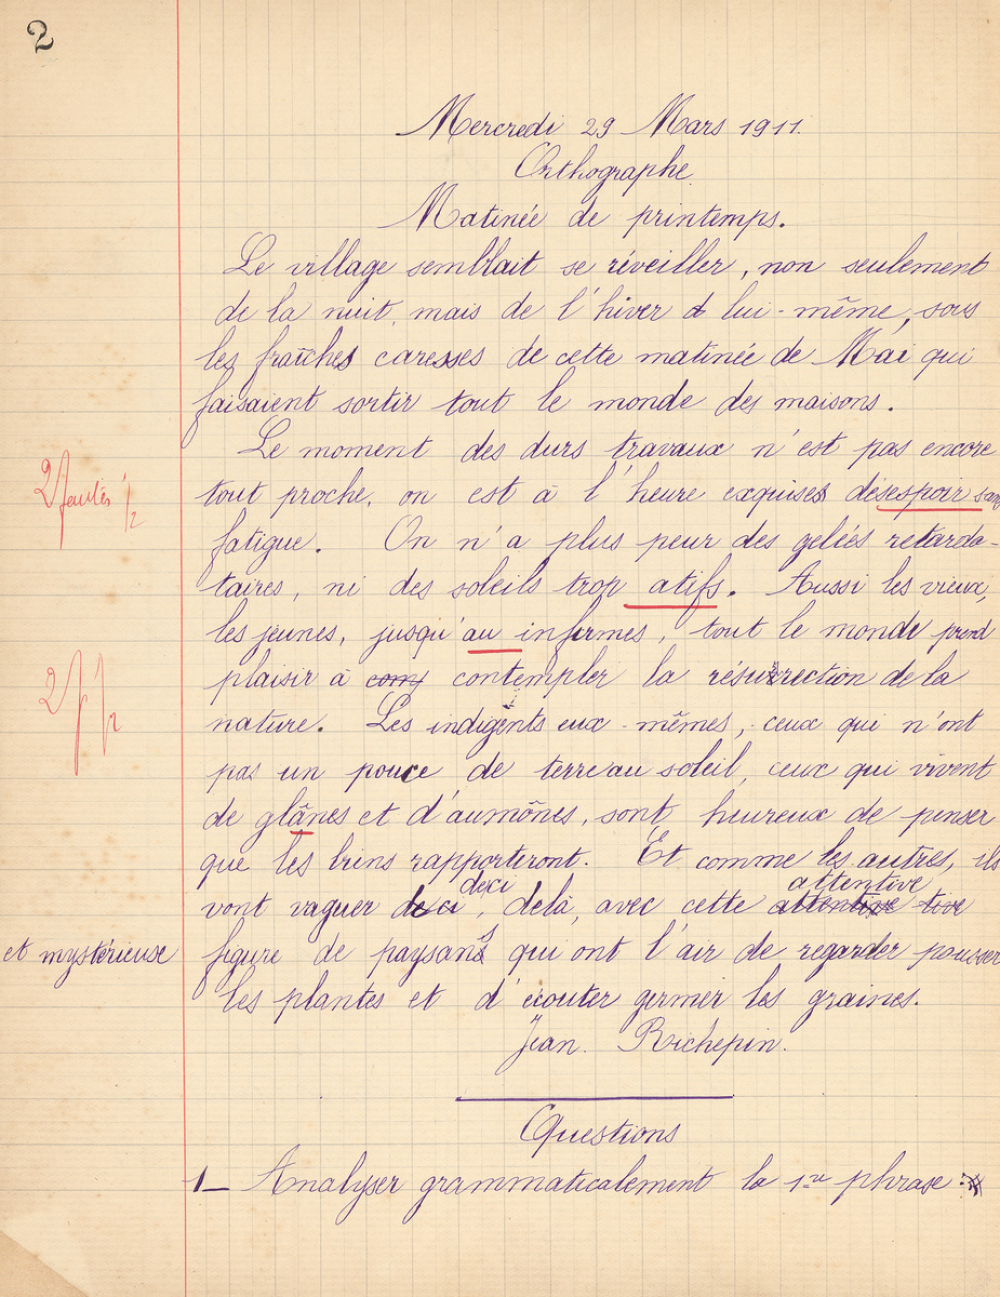 2
Mercredi 29 Mars 1911.
Orthographe
Matinée de printemps.
Le village semblait se réveiller, non seulement
de la nuit, mais de l'hiver lui-même, sous
les fraîches caresses de cette matinée de Mai qui
faisaient sortir tout le monde des maisons.
Le moment des durs travaux n'est pas encore
2 fautes 1/2
tout proche, on est à l'heure exquises désespoir sans
fatigue. On n'a plus peur des gelées retarda-
taires, ni des soleils trop atifs. Aussi les vieux,
les jeunes, jusqu'au infirmes, tout le monde prend
2 f 1/2
plaisir à com contempler la résurrection de la
nature. Les indigents eux-mêmes, ceux qui n'ont
pas un pouce de terre au soleil, ceux qui vivent
de glânes et d'aumônes, sont heureux de penser
que les brins rapporteront. Et comme les autres, ils
deci attentive
vont vaguer deci, delà, avec cette attentive tive
et mystérieuse figure de paysans qui ont l'air de regarder pousser
les plantes et d'écouter germer les graines.
Jean Richepin.
Questions
1_ Analyser grammaticalement la 1re phrase :